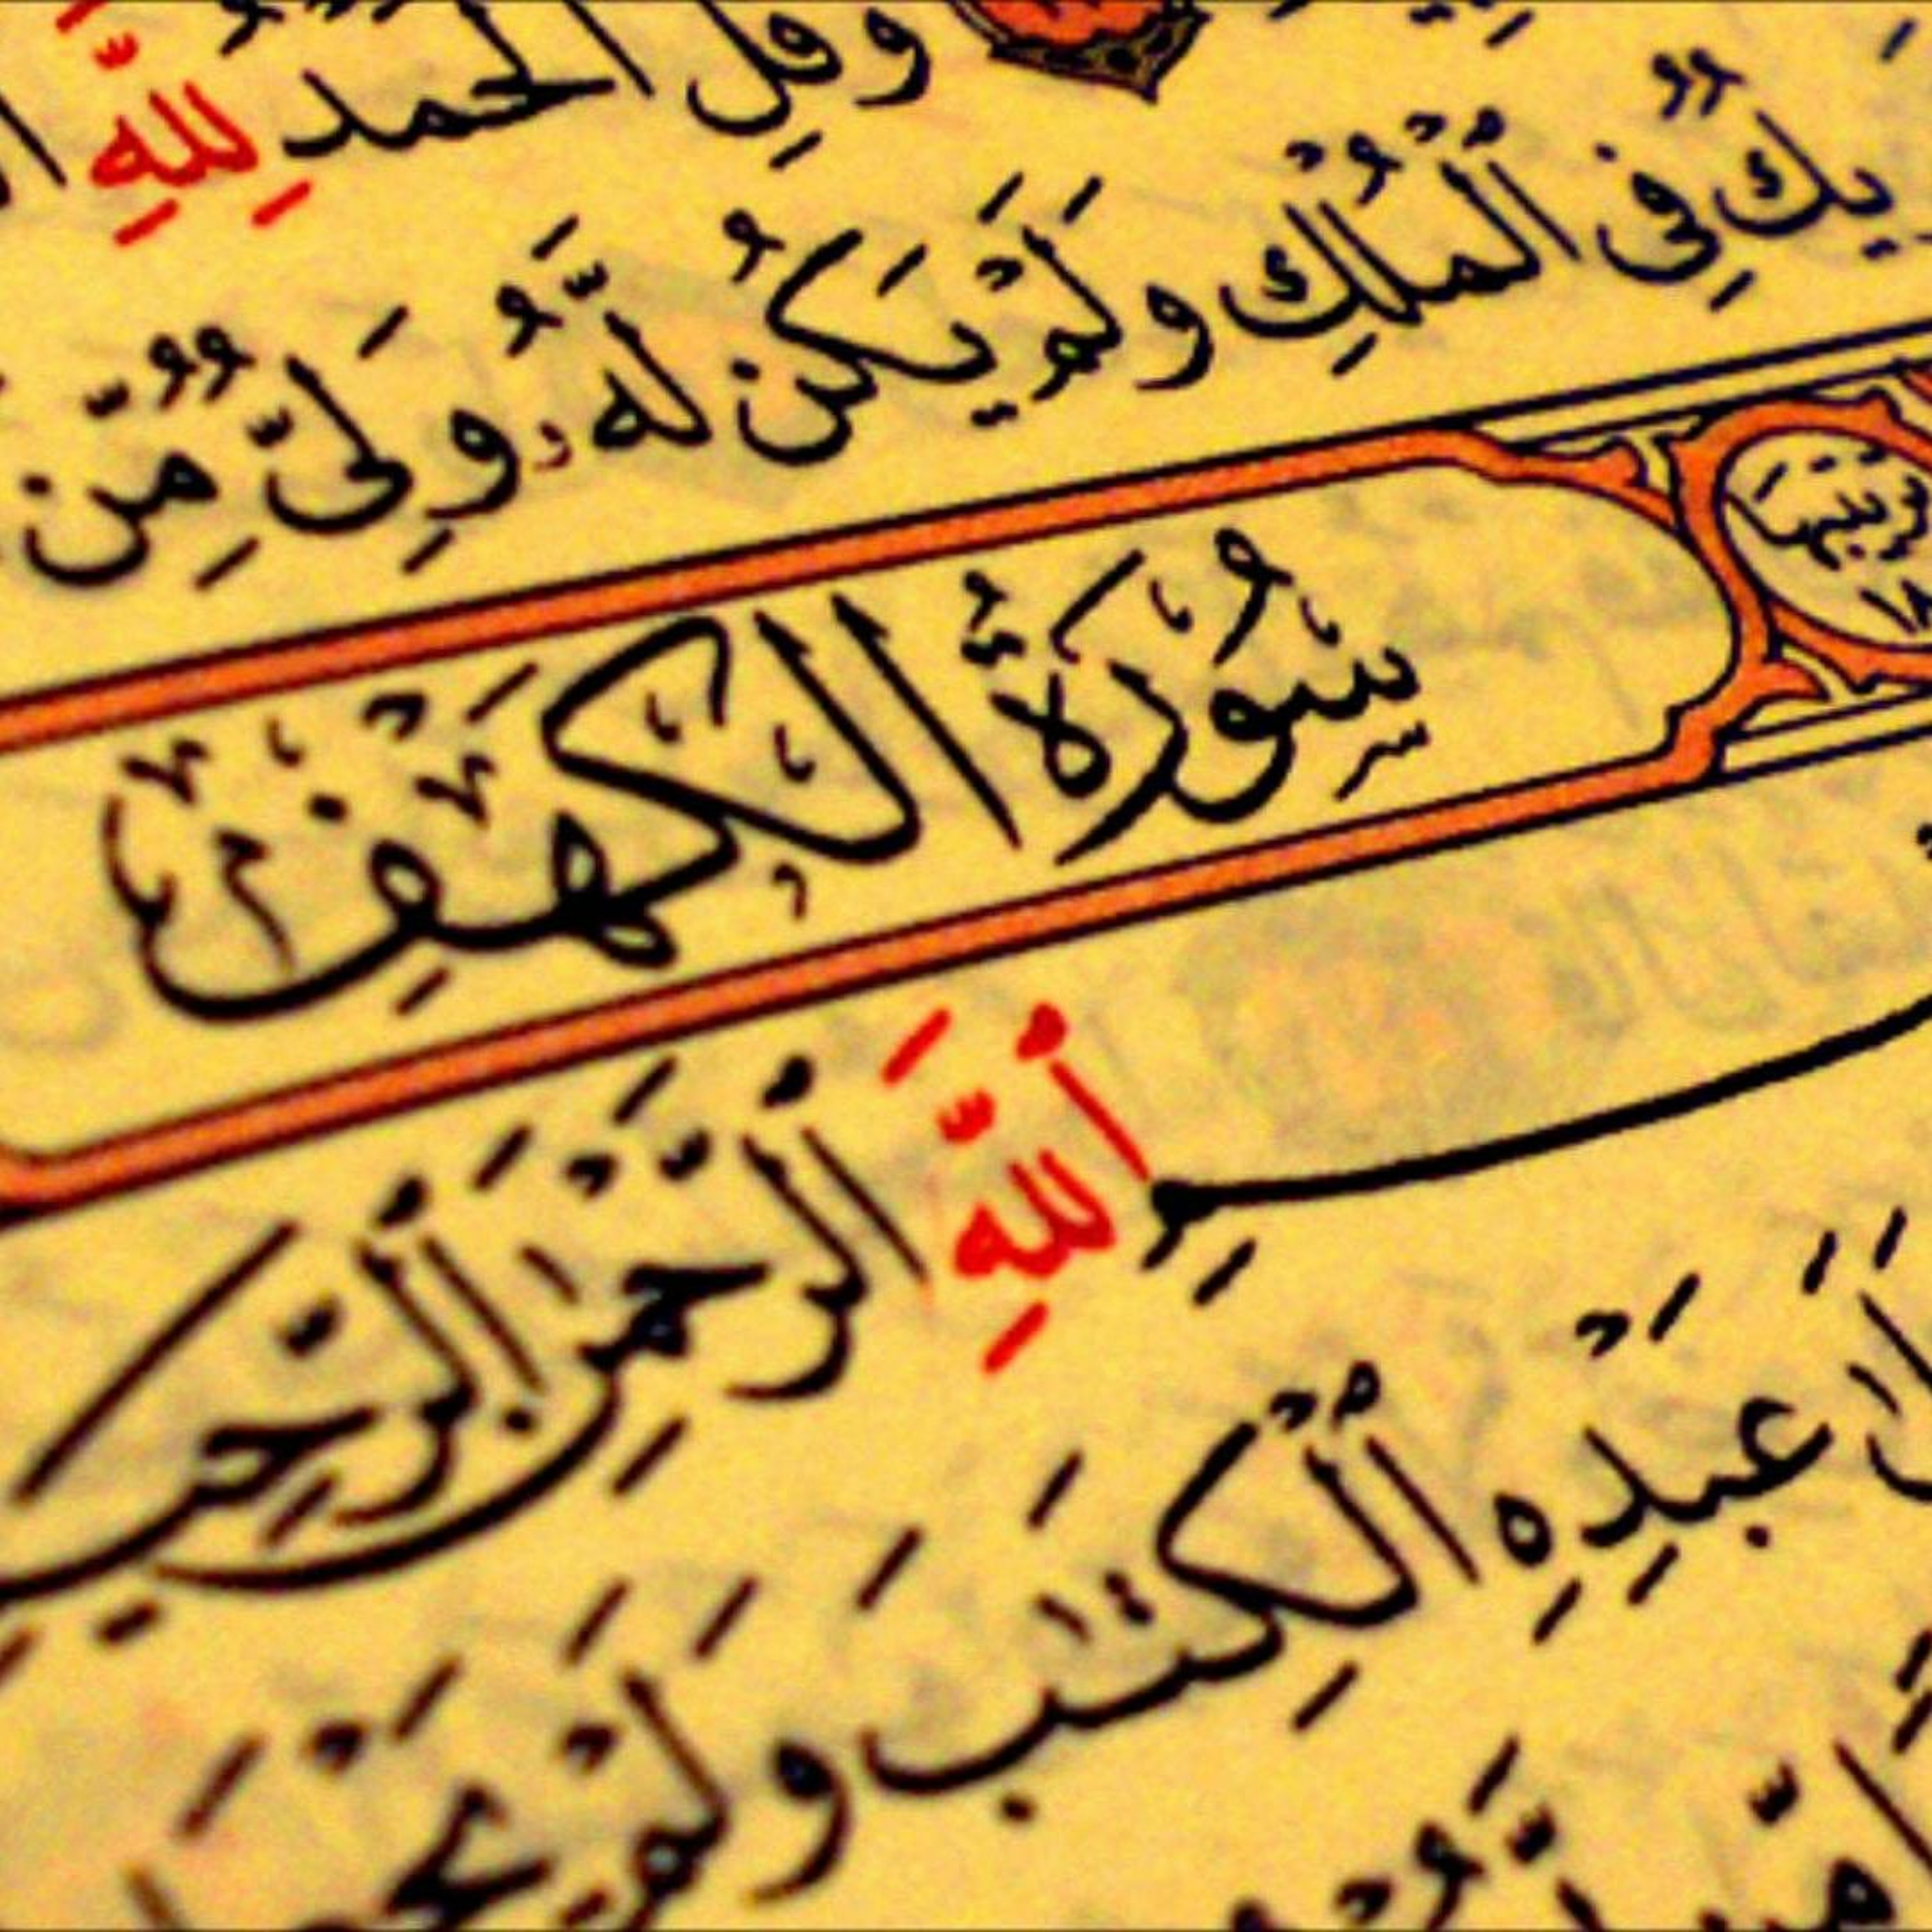 وَقُلِ الْحَمْدُ لِلَّهِ
فِي الْمُلْكِ وَلَمْ يَكُن
لَّهُۥ وَلِيٌّ مِّنَ
سُورَةُ الْكَهْفِ
ٱللَّهِ ٱلرَّحْمَٰنِ ٱلرَّحِيمِ
عَبْدِهِ ٱلْكِتَٰبَ وَلَمْ يَجْعَل